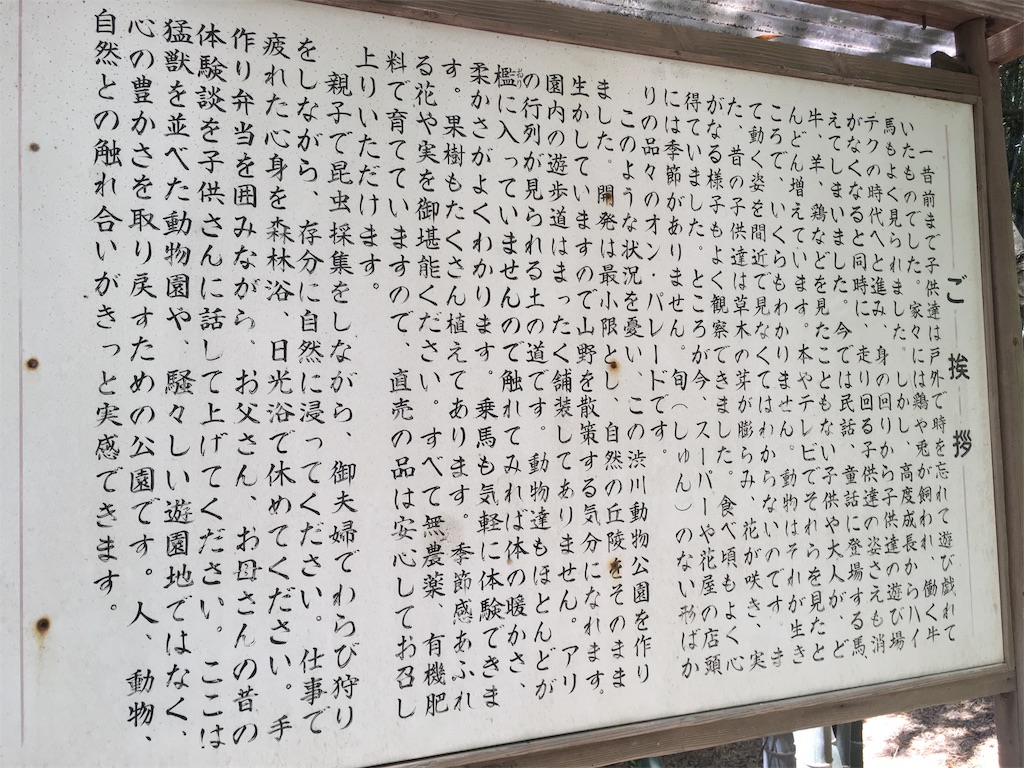 ご挨拶
一昔前まで子供達は戸外で時を忘れて遊び戯れて
いたものでした。家々には鶏や兎が飼われ、働く牛
馬もよく見られました。しかし、高度成長からハイ
テクの時代へと進み、身の回りから子供達の遊び場
がなくなると同時に、走り回る子供達の姿さえも消
えてしまいました。今では民話、童話に登場する馬、
牛、羊、鶏などを見たこともない子供や大人が、ど
んどん増えています。本やテレビでそれらを見たと
ころで、いくらもわかりません。動物はそれが生き
て動く姿を間近で見なくてはわからないのです。ま
た、昔の子供達は草木の芽が膨らみ、花が咲き、実
がなる様子もよく観察できました。食べ頃もよく心
得ていました。ところが今、スーパーや花屋の店頭
には季節がありません。旬（しゅん）のない形ばか
りの品々のオン・パレードです。
このような状況を憂い、この渋川動物公園を作り
ました。開発は最小限とし、自然の丘陵をそのまま
生かしていますので山野を散策する気分になれます。
園内の遊歩道はまったく舗装してありません。アリ
の行列が見られる土の道です。動物達もほとんどが
檻に入っていませんので触れてみれば体の暖かさ、
柔かさがよくわかります。乗馬も気軽に体験できま
す。果樹もたくさん植えてあります。季節感あふれ
る花や実を御堪能ください。すべて無農薬、有機肥
料で育てていますので、直売の品は安心してお召し
上りいただけます。
親子で昆虫採集をしながら、御夫婦でわらび狩り
をしながら、存分に自然に浸ってください。仕事で
疲れた心身を森林浴、日光浴で休めてください。手
作り弁当を囲みながら、お父さん、お母さんの昔の
体験談を子供さんに話して上げてください。ここは
猛獣を並べた動物園や、騒々しい遊園地ではなく、
心の豊かさを取り戻すための公園です。人、動物、
自然との触れ合いがきっと実感できます。